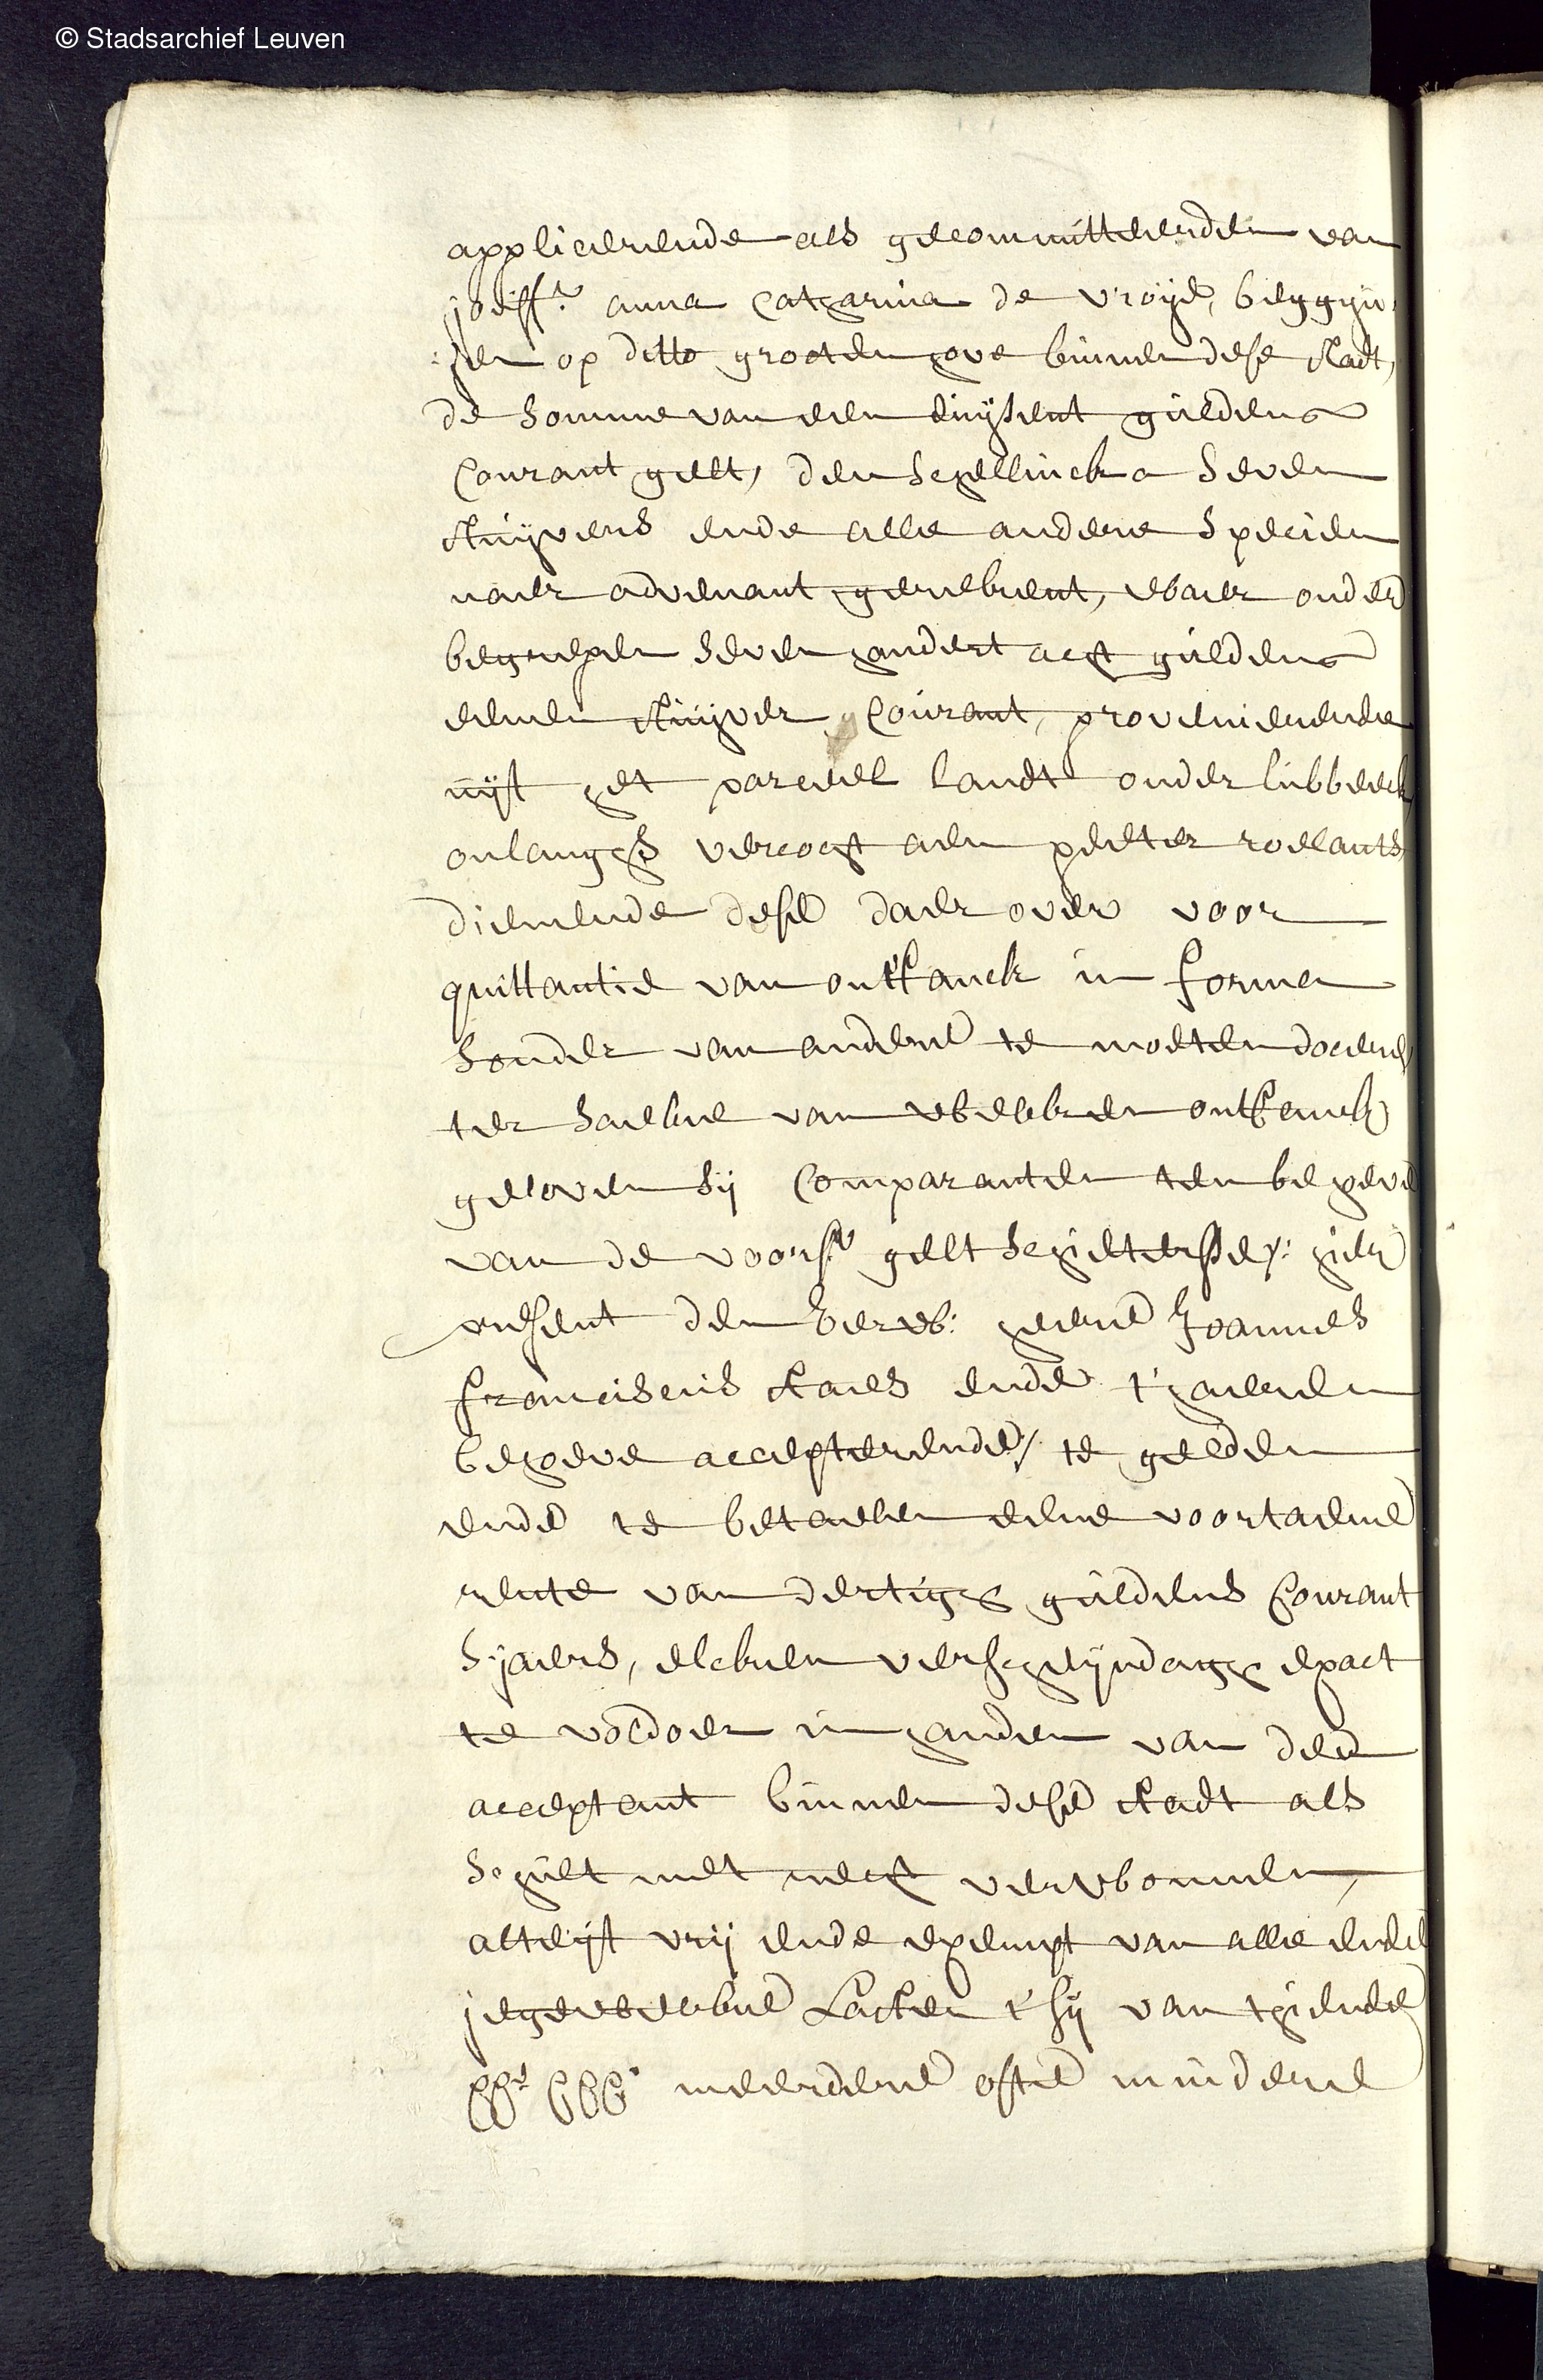 © Stadsarchief Leuven
applicerende als gecommitteerden van
joiff.e anna Catharina de vroije, beggijn
:hen op ditto grooten hove binnen dese stadt,
de somme van een duijsent guldens
Courant gelt, den schellinck a seven
stuijvers ende alle andere specien
naer advenant gerekent, waer onder
begrepen seven hondert acht guldens
eenen stuijver Courant, provenierende
uijt het parceel landt onder lubbeeck
onlanghs vercocht aen peeter roelants,
dienende dese daer over voor
quittantie van ontfanck in forma
sonder van andere te moeten doceren
ter saecke van welcken ontfanck
geloven sij Comparanten ten behoeve
van de voors. geltschietersse /: hier
present den Eerw: heere Joannes
franciscus staes ende t'haeren
behoeve accepterende/ te gelden
ende te betaelen eene voortaene
rente van dertigh guldens Courant
s'jaers, elcken verscheijndagh exact
te voldoen in handen van den
acceptant binnen dese stadt als
schult met recht verwonnen,
alteijt vrij ende exempt van alle ende
jegewelcke Lasten t'sij van thiende
XX.e CCC. meerdere ofte mindere